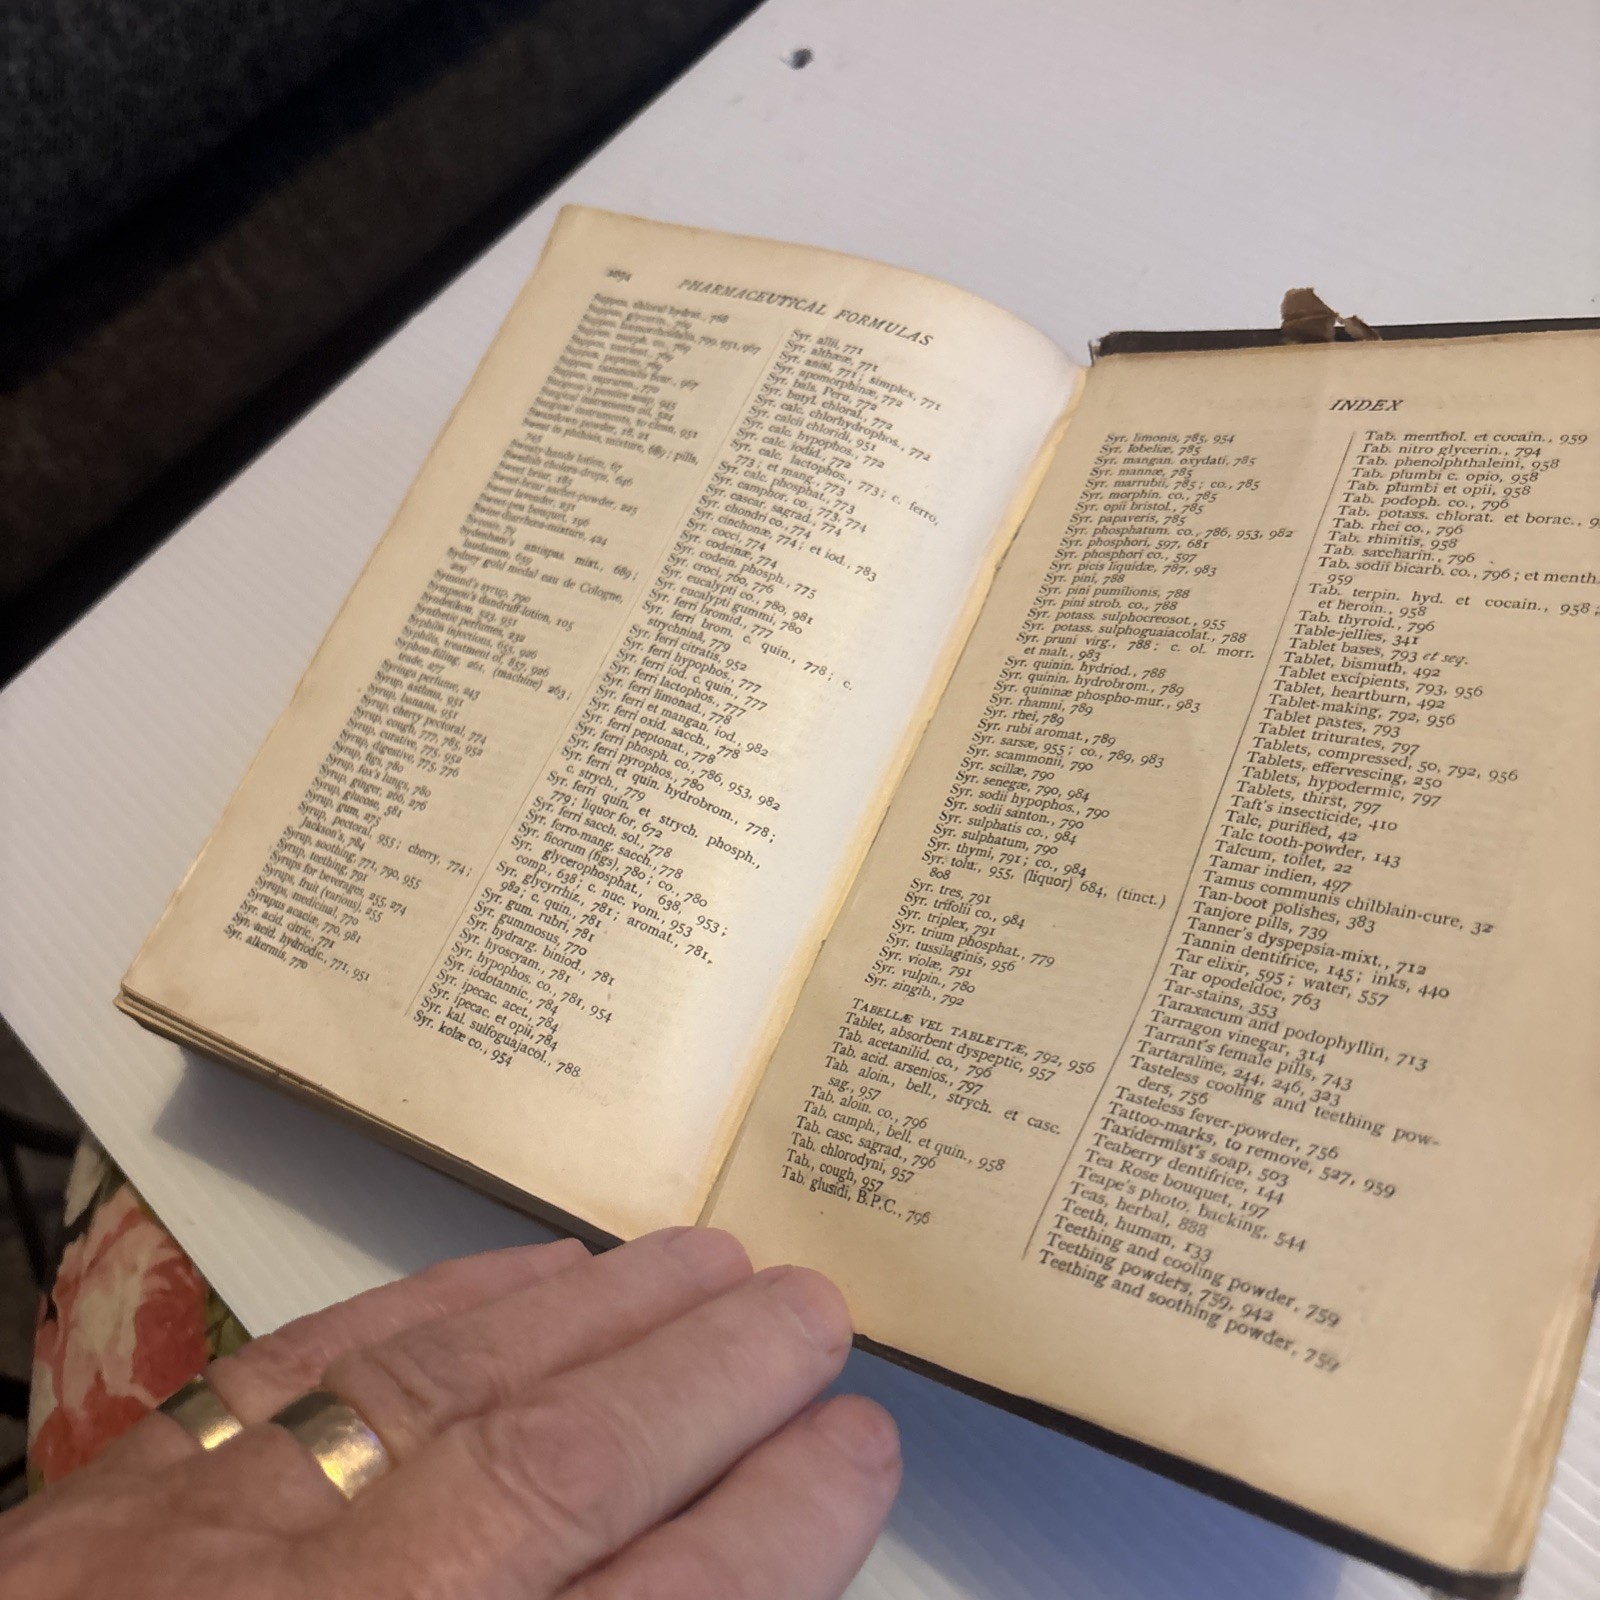 1074
PHARMACEUTICAL FORMULAS
Suppos. chloral hydrat., 768
Suppos. glycerin., 769
Suppos. hæmorrhoidalia, 799, 951, 967
Suppos. morph. co., 769
Suppos. nutrient., 769
Suppos. peptoni, 769
Suppos. ranunculi ficar., 967
Suppos. 770
Surgeon's powder soap, 945
Surgical instruments oil, 524
Surgical instruments, to clean, 951
Swandown powder, 18, 21
Sweat in phthisis, mixture, 689; pills,
745
Sweaty-hands lotion, 67
Swedish cholera-drops, 646
Sweet briar, 185
Sweet-briar sachet-powder, 225
Sweet lavender, 231
Sweet-pea bouquet, 196
Swine diarrhœa-mixture, 424
Sycosis, 71
Sydenham's antispas. mist., 689;
laudanum, 659
Sydney gold medal eau de Cologne,
209
Symond's syrup, 790
Sympson's dandruff-lotion, 105
Syndetikon, 323, 951
Synthetic perfumes, 232
Syphilis injections, 655, 926
Syphilis, treatment of, 857, 926
Syphon-filling, 261, (machine) 263;
trade, 277
Syringa perfume, 243
Syrup, asthma, 951
Syrup, banana, 951
Syrup, cherry pectoral, 774
Syrup, cough, 777, 785, 952
Syrup, curative, 775, 952
Syrup, digestive, 775, 776
Syrup, figs, 780
Syrup, fox's lungs, 780
Syrup, ginger, 266, 276
Syrup, glucose, 581
Syrup, gum, 275
Syrup, pectoral, 955; cherry, 774;
Jackson's, 784
Syrup, soothing, 771, 790, 955
Syrup, teething, 791
Syrups for beverages, 255, 274
Syrups, fruit (various), 255
Syrups, medicinal, 770
Syrupus acaciæ, 770, 981
Syr. acid. citric., 771
Syr. acid. hydriodic., 771, 951
Syr. alkermis, 770
Syr. allii, 771
Syr. althææ, 771
Syr. anisi, 771; simplex, 771
Syr. apomorphinæ, 772
Syr. bals. Peru, 772
Syr. butyl. chloral., 772
Syr. calc. chlorhydrophos., 772
Syr. calcii chloridi, 951
Syr. calc. hypophos., 772
Syr. calc. iodid., 772
Syr. calc. lactophos., 773; c. ferro,
773; et mang., 773
Syr. calc. phosphat., 773
Syr. camphor. co., 773, 774
Syr. cascar. sagrad., 774
Syr. chondri co., 774
Syr. cinchonæ, 774; et iod., 783
Syr. cocci, 774
Syr. codeinæ, 774
Syr. codein. phosph., 775
Syr. croci, 760, 776
Syr. eucalypti co., 780, 981
Syr. eucalypti gummi, 780
Syr. ferri bromid., 777
Syr. ferri brom. c. quin., 778; c.
strychninâ, 779
Syr. ferri citratis, 952
Syr. ferri hypophos., 777
Syr. ferri iod. c. quin., 777
Syr. ferri lactophos., 777
Syr. ferri limonad., 778
Syr. ferri et mangan. iod., 982
Syr. ferri oxid. sacch., 778
Syr. ferri peptonat., 778
Syr. ferri phosph. co., 786, 953, 982
Syr. ferri pyrophos., 780
Syr. ferri et quin. hydrobrom., 778;
c. strych., 779
Syr. ferri quin. et strych. phosph.,
779; liquor for, 672
Syr. ferri sacch. sol., 778
Syr. ferro-mang. sacch., 778
Syr. ficorum (figs), 780; co., 780
Syr. glycerophosphat., 638, 953;
comp., 638; c. nuc. vom., 953
Syr. glycyrrhiz., 781; aromat., 781,
982; c. quin., 781
Syr. gum. rubri, 781
Syr. gummosus, 770
Syr. hydrarg. biniod., 781
Syr. hyoscyam., 781
Syr. hypophos. co., 781, 954
Syr. iodotannic., 784
Syr. ipecac. acet., 784
Syr. ipecac. et opii, 784
Syr. kal. sulfoguajacol., 788
Syr. kolæ co., 954
INDEX
Syr. limonis, 785, 954
Syr. lobeliæ, 785
Syr. mangan. oxydati, 785
Syr. mannæ, 785
Syr. marrubii, 785; co., 785
Syr. morphin. co., 785
Syr. opii bristol., 785
Syr. papaveris, 785
Syr. phosphatum. co., 786, 953, 982
Syr. phosphori, 597, 681
Syr. phosphori co., 597
Syr. picis liquidæ, 787, 983
Syr. pini, 788
Syr. pini pumilionis, 788
Syr. pini strob. co., 788
Syr. potass. sulphocreosot., 955
Syr. potass. sulphoguaiacolat., 788
Syr. pruni virg., 788; c. ol. morr.
et malt., 983
Syr. quinin. hydriod., 788
Syr. quinin. hydrobrom., 789
Syr. quininæ phospho-mur., 983
Syr. rhamni, 789
Syr. rhei, 789
Syr. rubi aromat., 789
Syr. sarsæ, 955; co., 789, 983
Syr. scammonii, 790
Syr. scillæ, 790
Syr. senegæ, 790, 984
Syr. sodii hypophos., 790
Syr. sodii santon., 790
Syr. sulphatis co., 984
Syr. sulphatum, 790
Syr. thymi, 791; co., 984
Syr. tolu., 955, (liquor) 684, (tinct.)
808
Syr. tres, 791
Syr. trifolii co., 984
Syr. triplex, 791
Syr. trium phosphat., 779
Syr. tussilaginis, 956
Syr. violæ, 791
Syr. vulpin., 780
Syr. zingib., 792
TABELLÆ VEL TABLETTÆ, 792, 956
Tablet, absorbent dyspeptic, 957
Tab. acetanilid. co., 796
Tab. acid. arsenios., 797
Tab. aloin., bell., strych. et casc.
sag., 957
Tab. aloin. co., 796
Tab. camph., bell. et quin., 958
Tab. casc. sagrad., 796
Tab. chlorodyni, 957
Tab., cough, 957
Tab. glusidi, B.P.C., 796
Tab. menthol. et cocain., 959
Tab. nitro glycerin., 794
Tab. phenolphthaleini, 958
Tab. plumbi c. opio, 958
Tab. plumbi et opii, 958
Tab. podoph. co., 796
Tab. potass. chlorat. et borac., 9
Tab. rhei co., 796
Tab. rhinitis, 958
Tab. saccharin., 796
Tab. sodii bicarb. co., 796; et menth.
959
Tab. terpin. hyd. et cocain., 958;
et heroin., 958
Tab. thyroid., 796
Table-jellies, 341
Tablet bases, 793 et seq.
Tablet, bismuth, 492
Tablet excipients, 793, 956
Tablet, heartburn, 492
Tablet-making, 792, 956
Tablet pastes, 793
Tablet triturates, 797
Tablets, compressed, 50, 792, 956
Tablets, effervescing, 250
Tablets, hypodermic, 797
Tablets, thirst, 797
Taft's insecticide, 410
Talc, purified, 42
Talc tooth-powder, 143
Talcum, toilet, 22
Tamar indien, 497
Tamus communis chilblain-cure, 32
Tan-boot polishes, 383
Tanjore pills, 739
Tanner's dyspepsia-mixt., 712
Tannin dentifrice, 145; inks, 440
Tar elixir, 595; water, 557
Tar opodeldoc, 763
Tar-stains, 353
Taraxacum and podophyllin, 713
Tarragon vinegar, 314
Tarrant's female pills, 743
Tartaraline, 244, 246, 323
Tasteless cooling and teething pow-
ders, 756
Tasteless fever-powder, 756
Tattoo-marks, to remove, 527, 959
Taxidermist's soap, 503
Teaberry dentifrice, 144
Tea Rose bouquet, 197
Teape's photo. backing, 544
Teas, herbal, 888
Teeth, human, 133
Teething and cooling powder, 759
Teething powders, 759, 942
Teething and soothing powder, 759